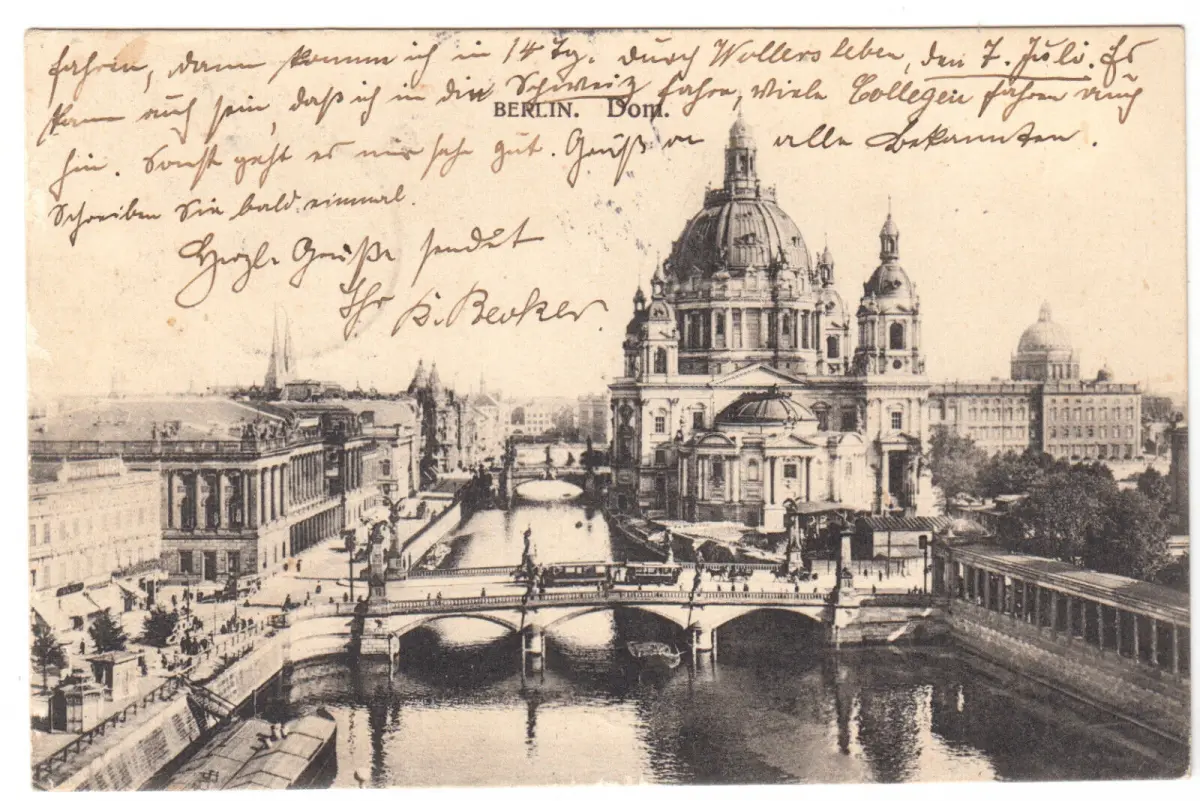 fahren, dann komm ich in 14 Tg. durch Wollersleben, den 7. Juli. Es
kann auch sein, daß ich in die Schweiz fahre, viele Collegen fahren auch
BERLIN. Dom.
hin. Sonst geht es mir sehr gut. Grüß an alle Bekannten.
Schreiben Sie bald einmal.
Herzl. Grüße sendet
Ihr K. Becker.